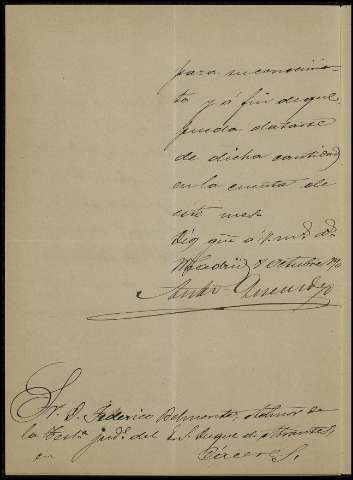 para su conocimien-
to y á fin de que
pueda datarse
de dicha cantidad
en la cuenta de
este mes.
Dios gue á V. ms. as.
Madrid 8 Octubre
Sr. D. Federico Belmonte,
la Test.ª jud.l del E. S. Duque de Abrantes,
en Cáceres.